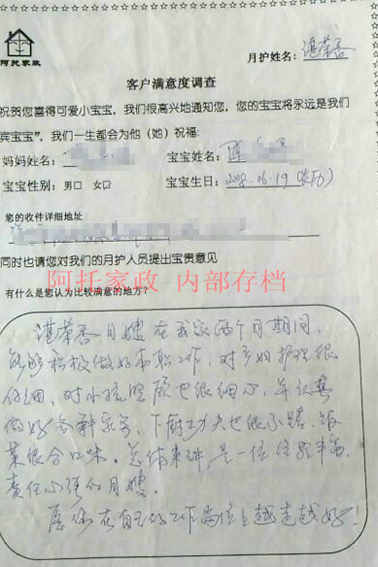 阿托家政
月护姓名:湛荣香
客户满意度调查
祝贺您喜得可爱小宝宝,我们很高兴地通知您,您的宝宝将永远是我们
宾宝宝”,我们一生都会为他(她)祝福:
妈妈姓名: 宝宝姓名:陈
宝宝性别:男□ 女□ 宝宝生日: 06.19(农历)
您的收件详细地址
同时也请您对我们的月护人员提出宝贵意见
阿托家政 内部存档
有什么是您认为比较满意的地方?
湛荣香月嫂在我家两个月期间,
能够积极做好本职工作,对产妇护理很
仔细,对小孩照顾也很细心,并认真
做好各种家务,下厨功夫也很不错,饭
菜很合口味。总结来讲是一位经验丰富,
责任心强的月嫂。
愿你在自己的工作岗位上越走越好!